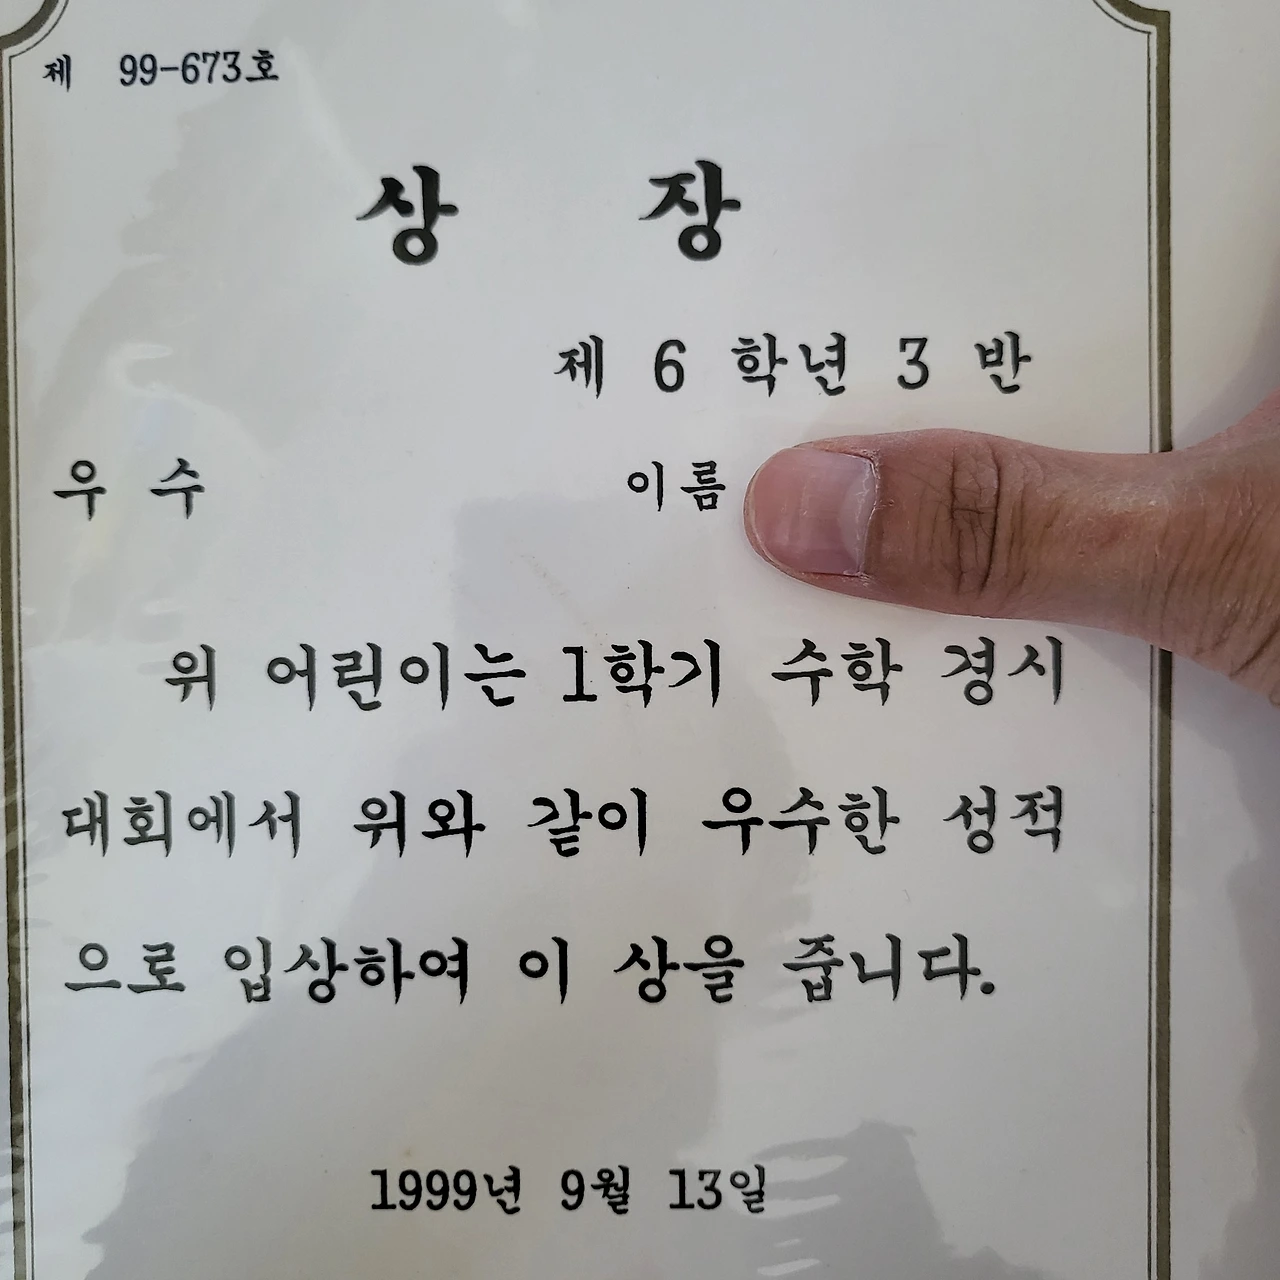 제 99-673호
상 장
제 6 학년 3 반
우 수 이름
위 어린이는 1학기 수학 경시
대회에서 위와 같이 우수한 성적
으로 입상하여 이 상을 줍니다.
1999년 9월 13일